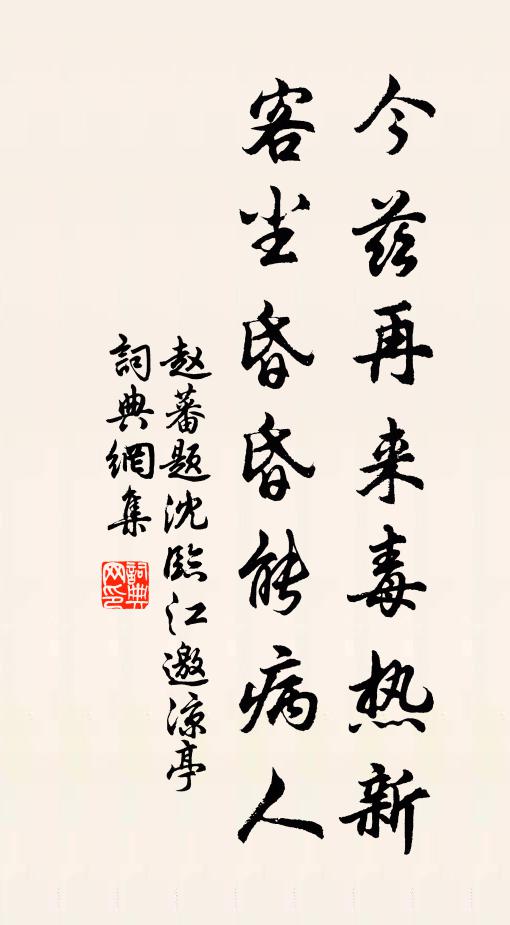 今兹再来毒热新
客尘昏昏能病人
赵蕃题沈临江邀凉亭
詞典網集
詞典网印